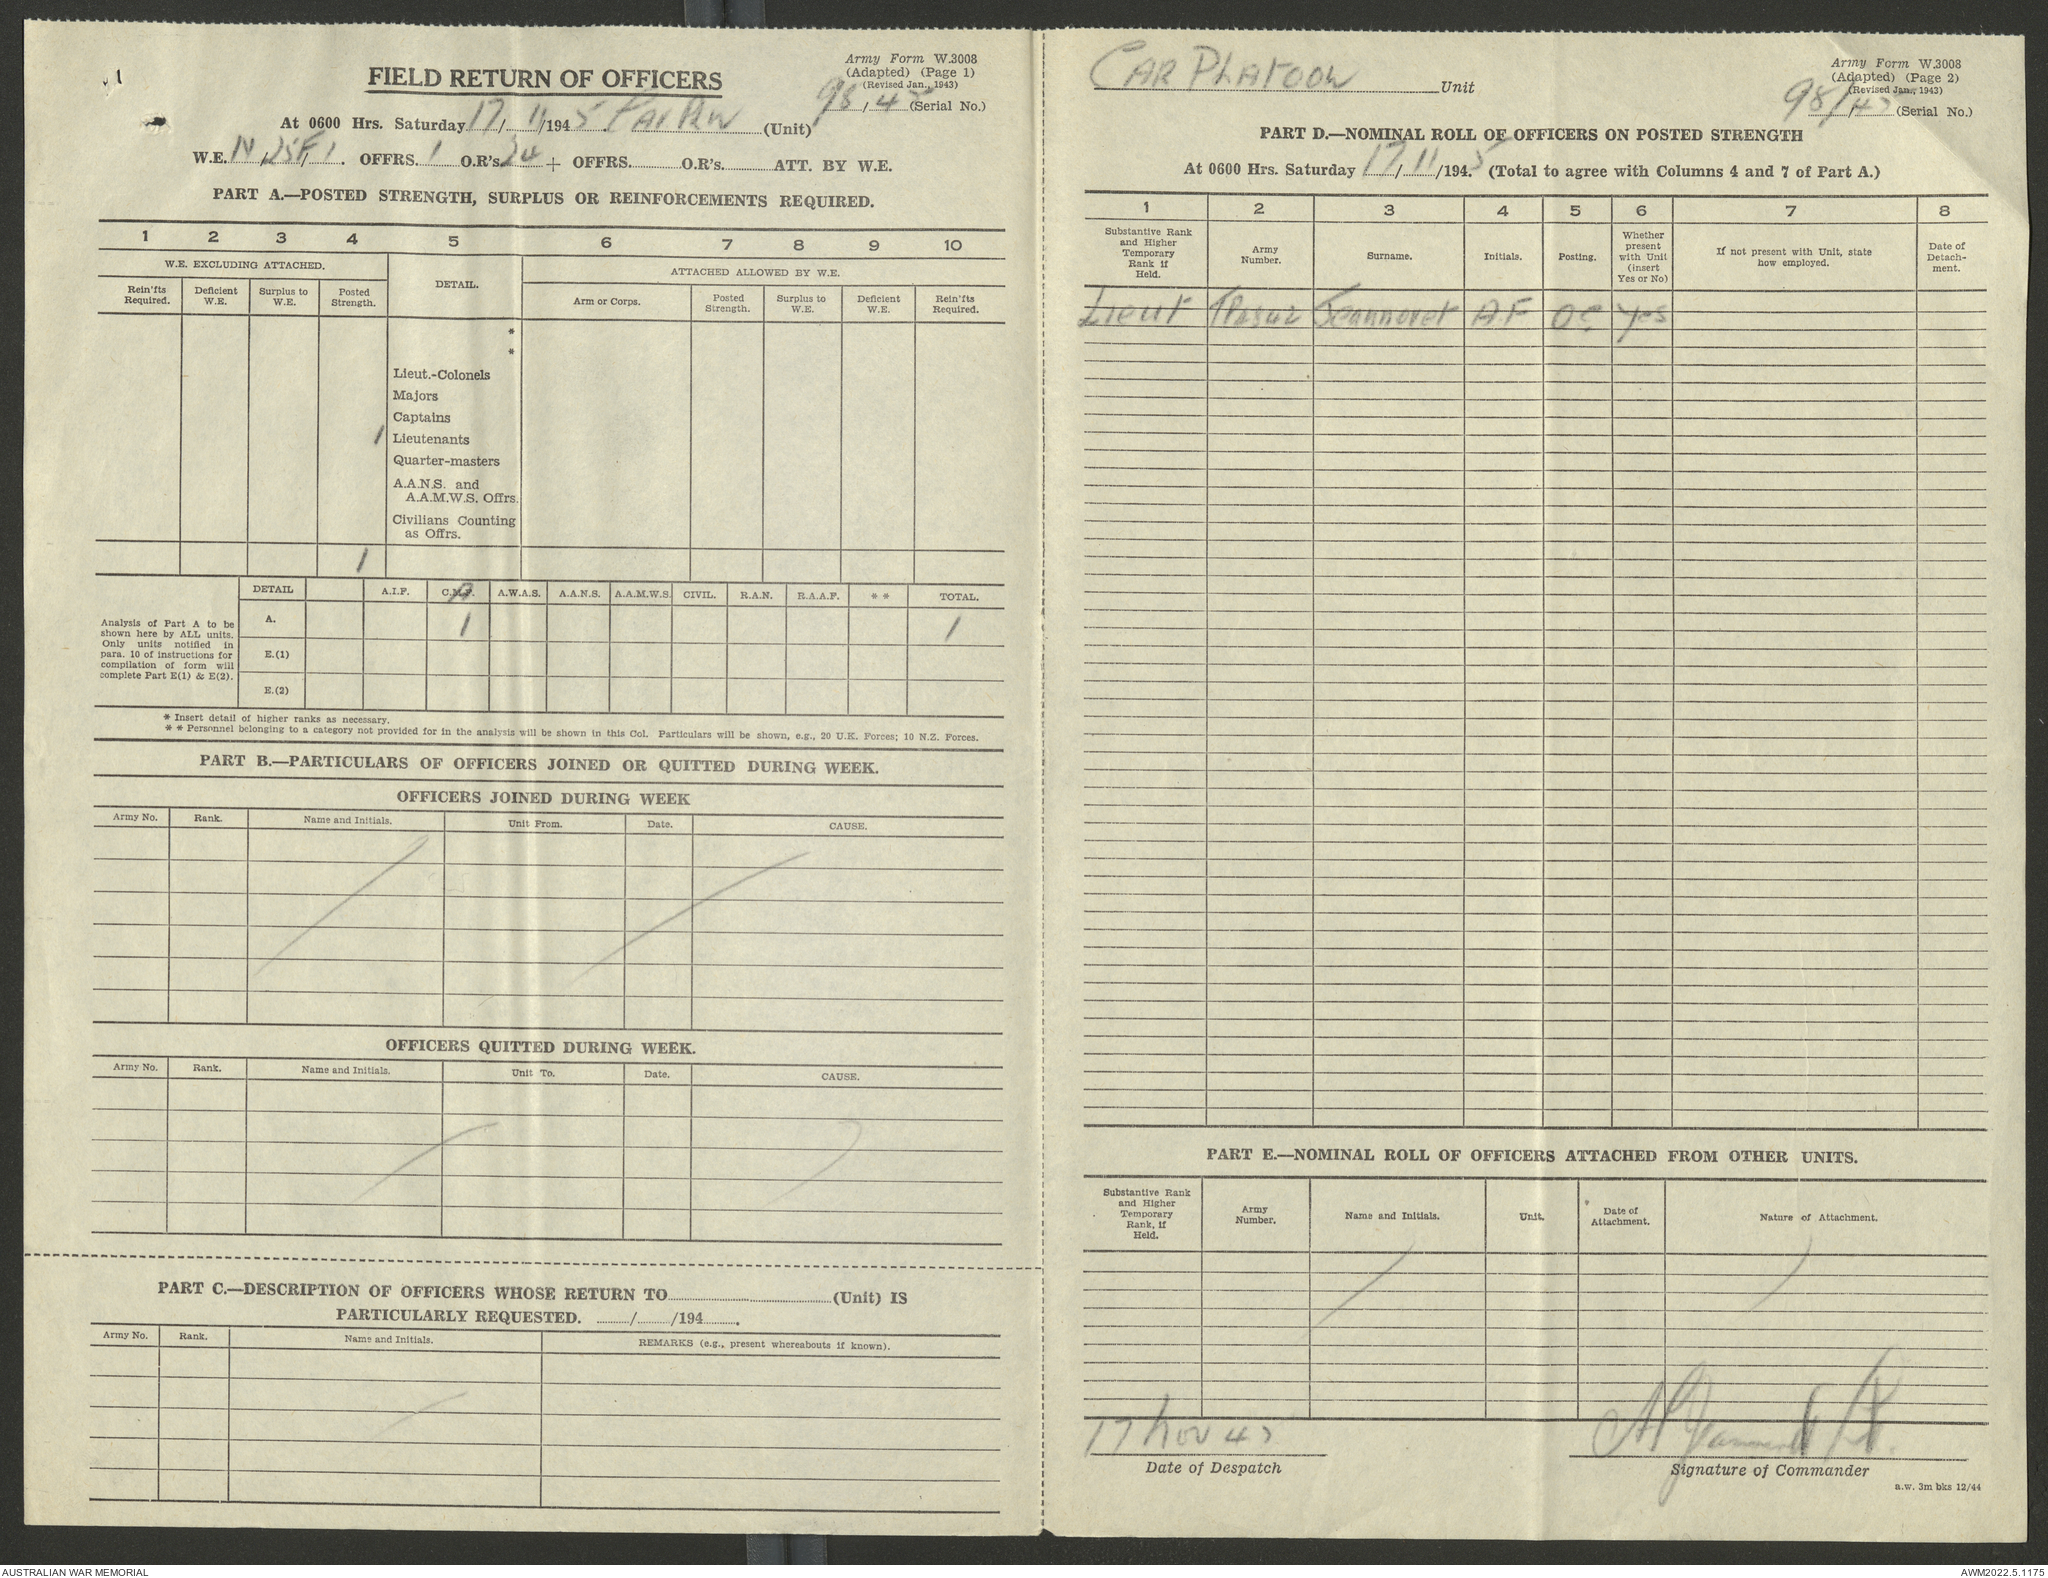 FIELD RETURN OF OFFICERS
Army Form W.3008
(Adapted) (Page 1)
(Revised Jan., 1943)
98/45 (Serial No.)
At 0600 Hrs. Saturday 17/11/1945 Car Pltn (Unit)
W.E. OFFRS. 1 O.R's 24 + OFFRS. O.R's ATT. BY W.E.
PART A.—POSTED STRENGTH, SURPLUS OR REINFORCEMENTS REQUIRED.
1 2 3 4 5 6 7 8 9 10
W.E. EXCLUDING ATTACHED.
DETAIL.
ATTACHED ALLOWED BY W.E.
Rein'fts Required.
Deficient W.E.
Surplus to W.E.
Posted Strength.
Arm or Corps.
Posted Strength.
Surplus to W.E.
Deficient W.E.
Rein'fts Required.
*
*
Lieut.-Colonels
Majors
Captains
1 Lieutenants
Quarter-masters
A.A.N.S. and
A.A.M.W.S. Offrs.
Civilians Counting
as Offrs.
1
DETAIL A.I.F. C.M.F. A.W.A.S. A.A.N.S. A.A.M.W.S. CIVIL. R.A.N. R.A.A.F. * * TOTAL.
Analysis of Part A to be
shown here by ALL units.
Only units notified in
para. 10 of instructions for
compilation of form will
complete Part E(1) & E(2).
A. 1 1
E.(1)
E.(2)
* Insert detail of higher ranks as necessary.
* * Personnel belonging to a category not provided for in the analysis will be shown in this Col. Particulars will be shown, e.g., 20 U.K. Forces; 10 N.Z. Forces.
PART B.—PARTICULARS OF OFFICERS JOINED OR QUITTED DURING WEEK.
OFFICERS JOINED DURING WEEK
Army No. Rank. Name and Initials. Unit From. Date. CAUSE.
OFFICERS QUITTED DURING WEEK.
Army No. Rank. Name and Initials. Unit To. Date. CAUSE.
PART C.—DESCRIPTION OF OFFICERS WHOSE RETURN TO (Unit) IS
PARTICULARLY REQUESTED. / /194 .
Army No. Rank. Name and Initials. REMARKS (e.g., present whereabouts if known).
CAR PLATOON Unit
Army Form W.3008
(Adapted) (Page 2)
(Revised Jan., 1943)
98/45 (Serial No.)
PART D.—NOMINAL ROLL OF OFFICERS ON POSTED STRENGTH
At 0600 Hrs. Saturday 17/11/1945 (Total to agree with Columns 4 and 7 of Part A.)
1 2 3 4 5 6 7 8
Substantive Rank and Higher Temporary Rank if Held.
Army Number.
Surname.
Initials.
Posting.
Whether present with Unit (insert Yes or No)
If not present with Unit, state how employed.
Date of Detach-ment.
Lieut Jeannoret A.F OC Yes
PART E.—NOMINAL ROLL OF OFFICERS ATTACHED FROM OTHER UNITS.
Substantive Rank and Higher Temporary Rank, if Held.
Army Number.
Name and Initials.
Unit.
Date of Attachment.
Nature of Attachment.
17 Nov 45
Date of Despatch
Signature of Commander
a.w. 3m bks 12/44
AUSTRALIAN WAR MEMORIAL
AWM2022.5.1175